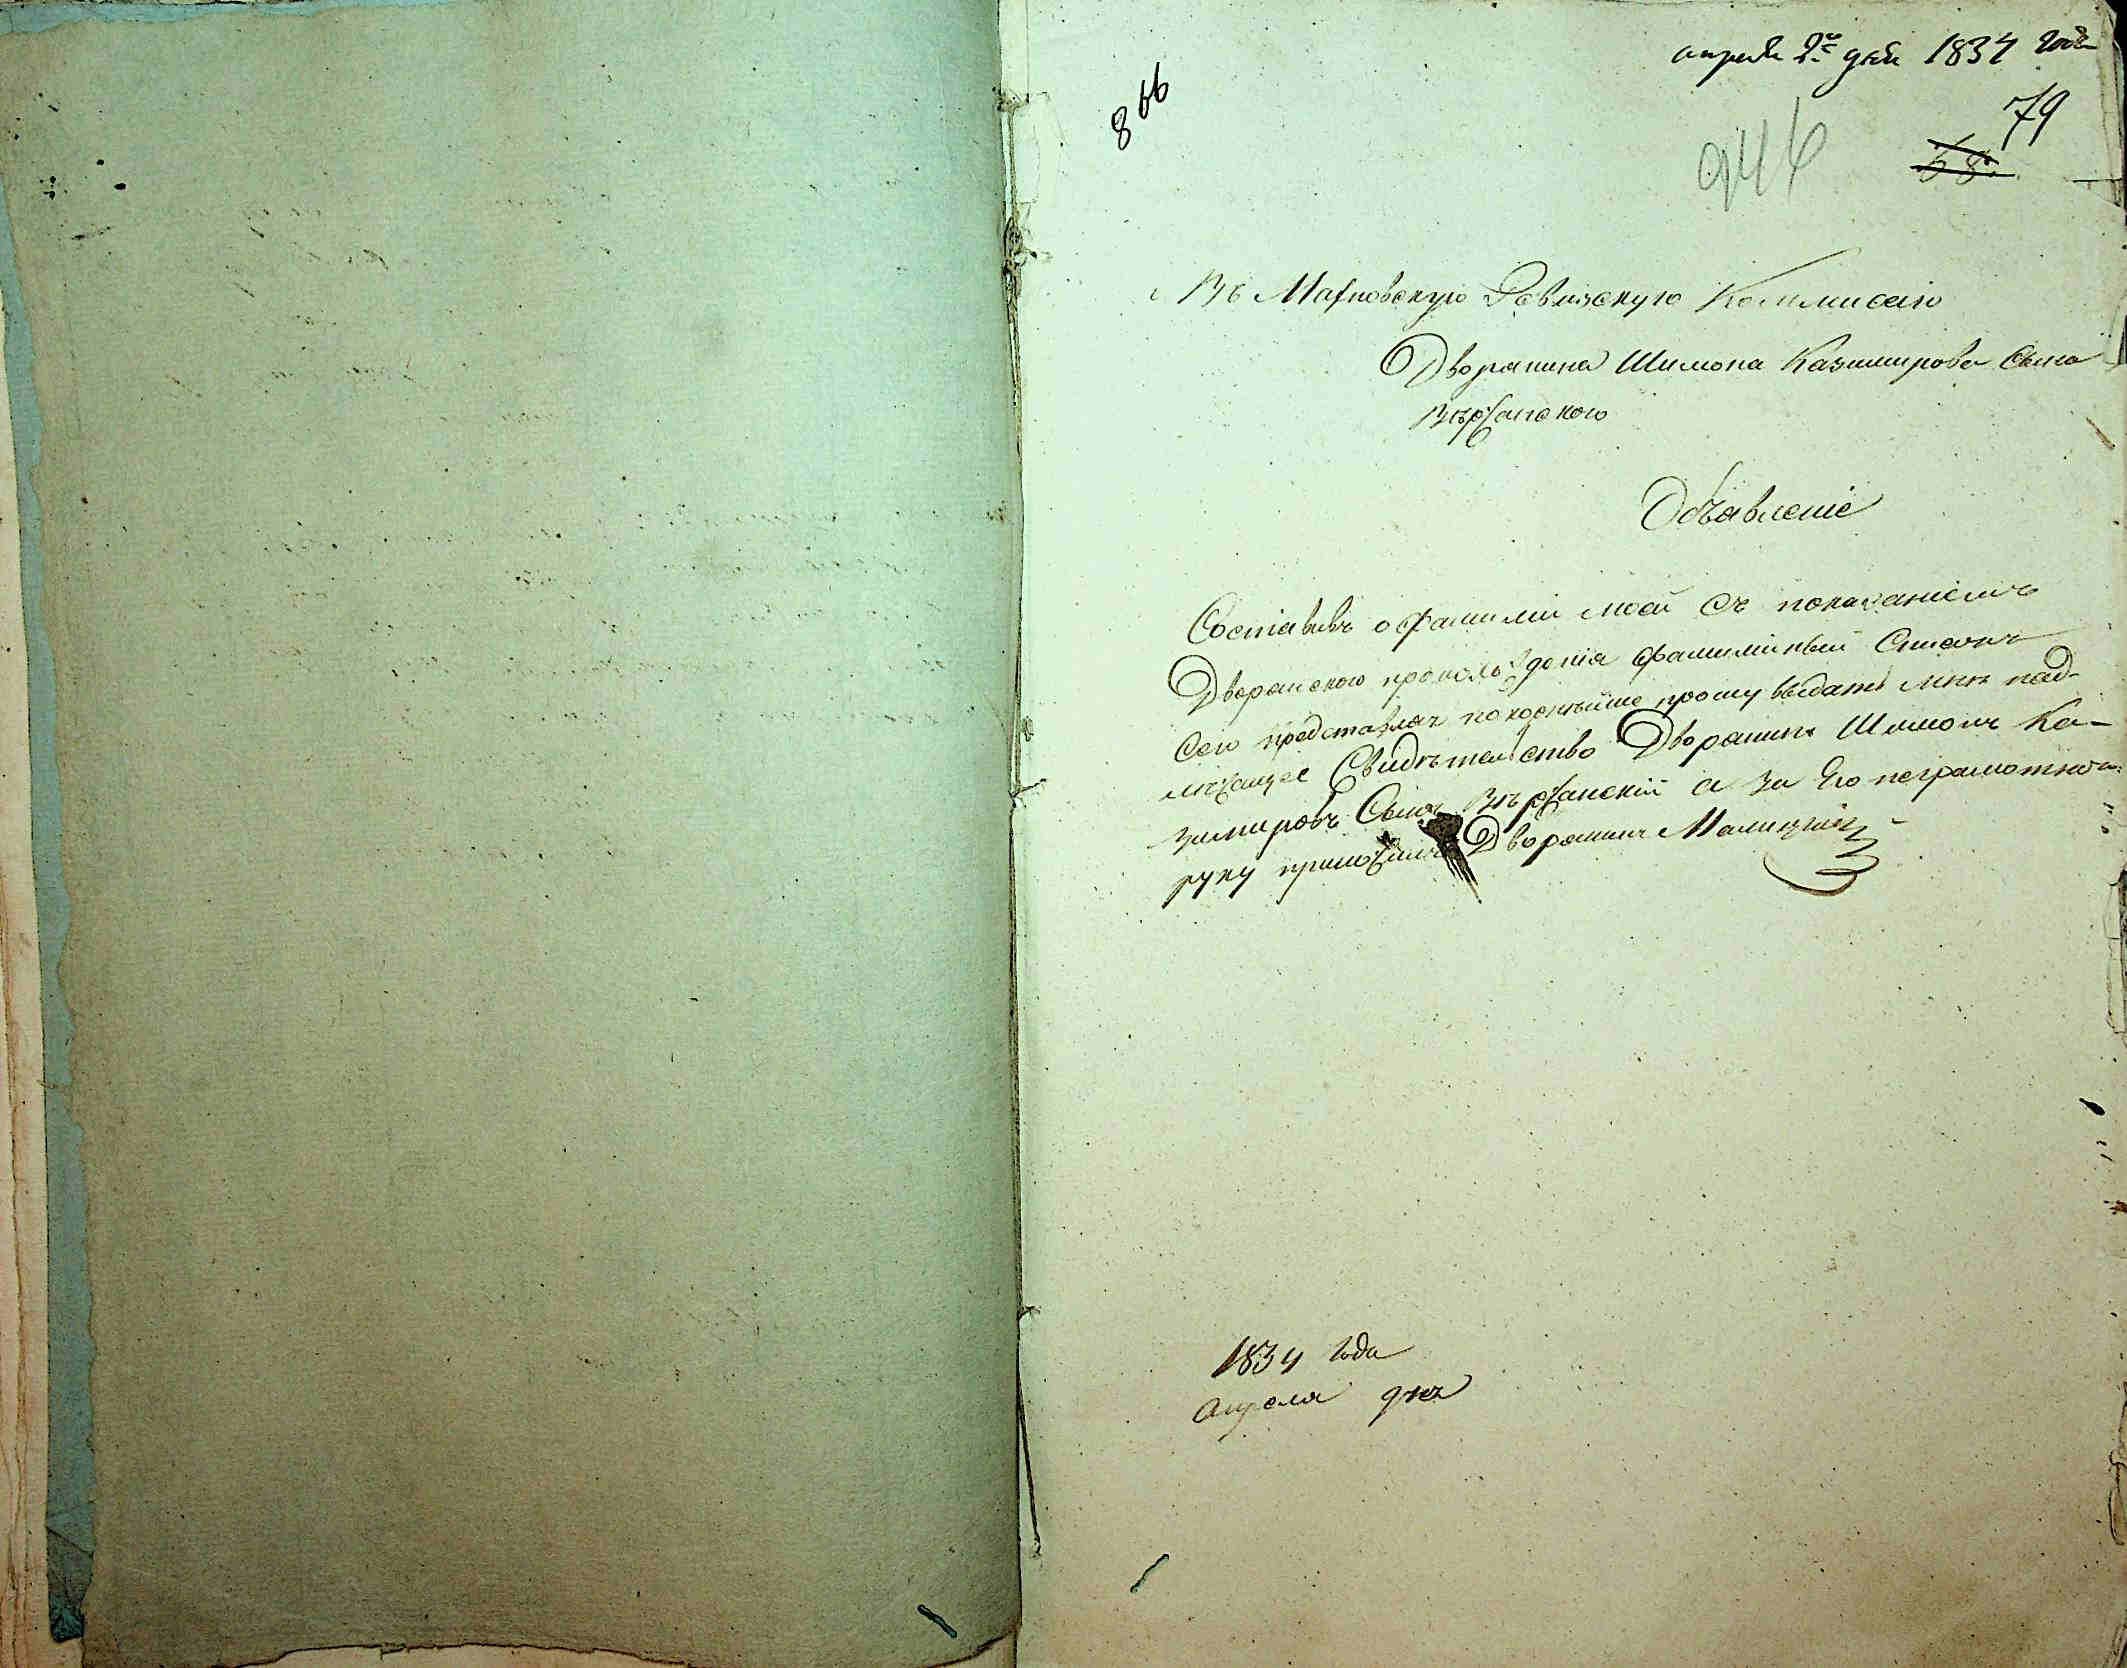 апреля 2го дня 1834 года
866
79
946
58
Въ Махновскую Ревизскую Коммисію
Дворянина Шимона Казимирова Сына
Вержанского
Объявленіе
Составивъ о фамиліи моей съ показаніемъ
Дворянского происхожденія фамилійный Списокъ
Сего представляя покорнѣйше прошу выдать мнѣ над-
лежащее Свидѣтельство Дворянинъ Шимонъ Ка-
зимировъ Сынъ Вержанскій а за Его неграмотност.
руку приложилъ Дворянинъ Малицкій
1834 года
апреля дня